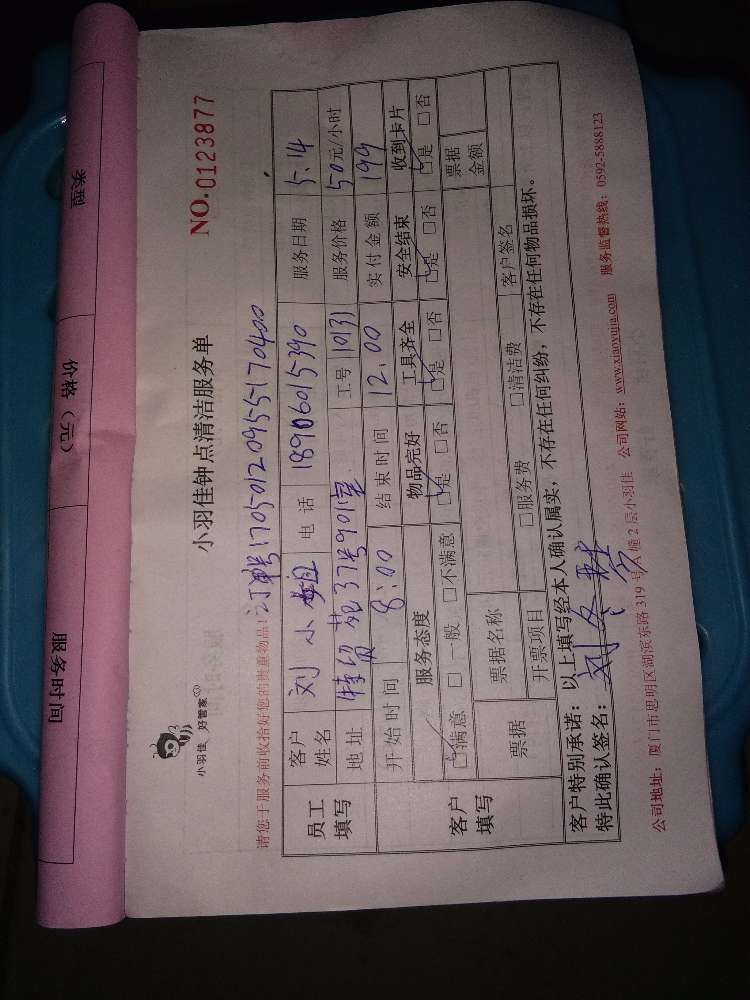 类型 价格（元） 服务时间
小羽佳 好管家
小羽佳钟点清洁服务单
NO.0123877
请您于服务前收拾好您的贵重物品！ 订单号1705012095517040
员工填写
客户姓名 刘小姐 电话 18906015390 服务日期 5.14
地址 特贸苑37号901室 工号 10131 服务价格 50元/小时
开始时间 8:00 结束时间 12.00 实付金额 199
客户填写
服务态度 物品完好 工具齐全 安全结束 收到卡片
☑满意 □一般 □不满意 ☑是 □否 ☑是 □否 ☑是 □否 ☑是 □否
票据 票据名称 票据金额
开票项目 □服务费 □清洁费 客户签名
客户特别承诺：以上填写经本人确认属实，不存在任何纠纷，不存在任何物品损坏。
特此确认签名：
公司地址：厦门市思明区湖滨东路319号A幢2层小羽佳 公司网站：www.xiaoyujia.com 服务监督热线：0592-5888123